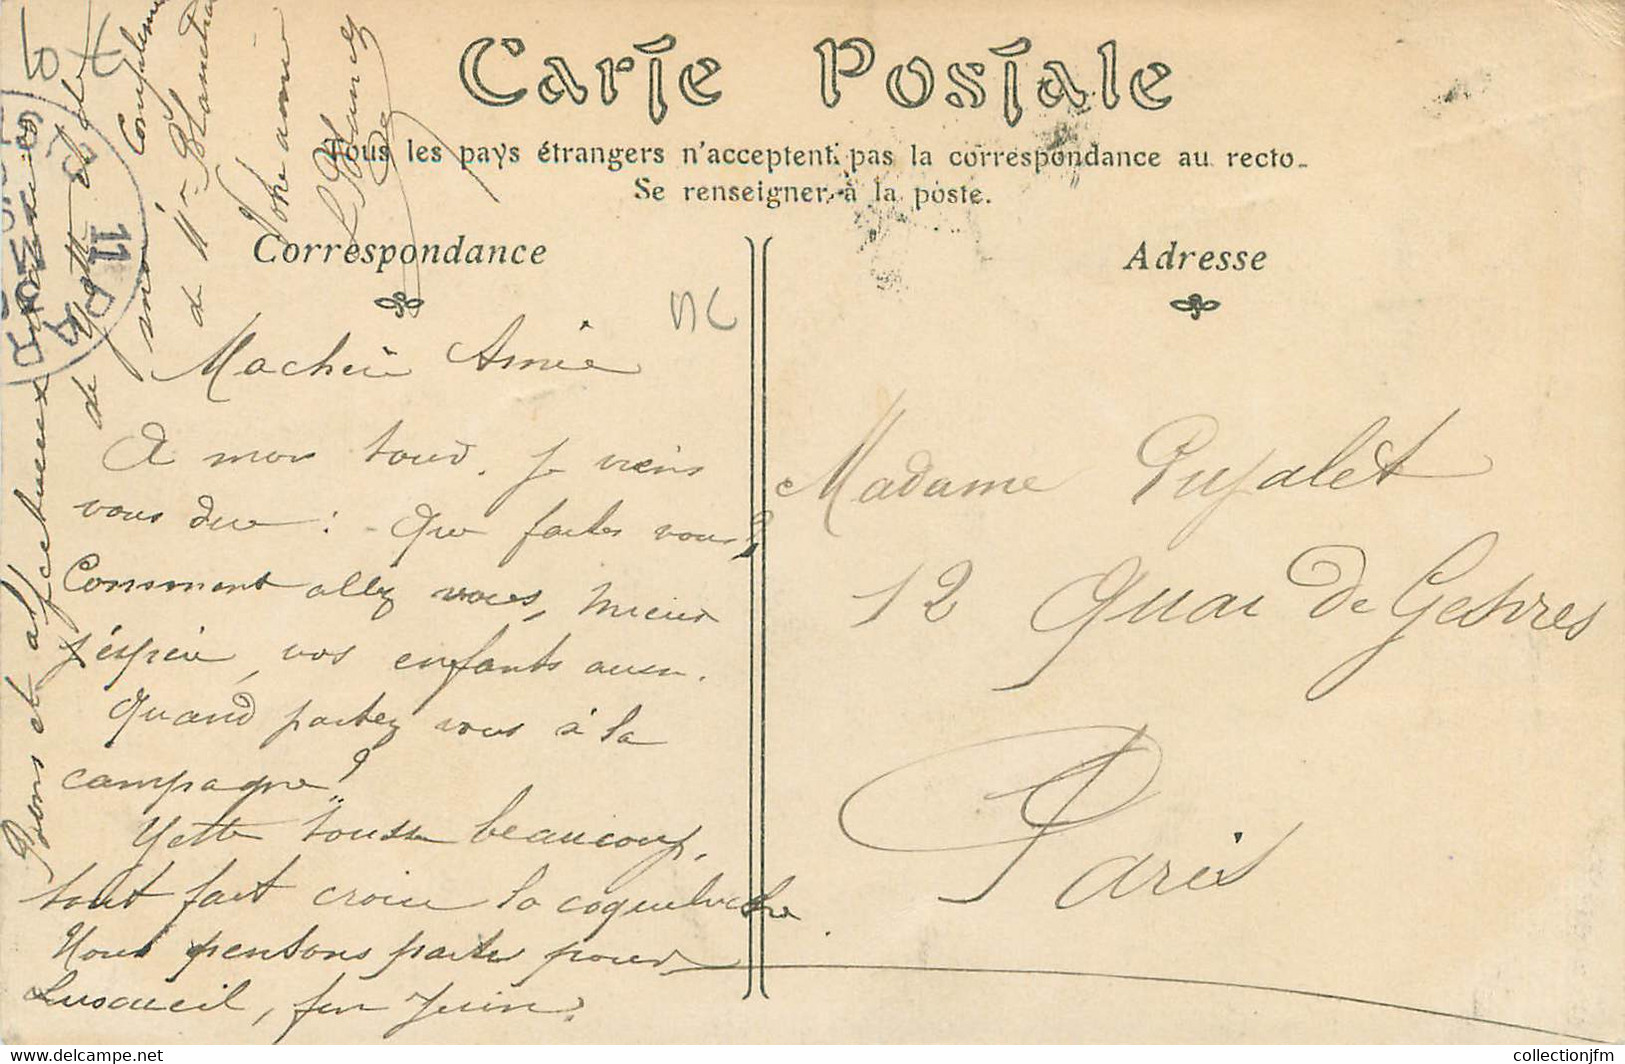 Carte Postale
Tous les pays étrangers n'acceptent pas la correspondance au recto.
Se renseigner à la poste.
Correspondance
Adresse
Ma chère Amie
A mon tour, je viens
vous dire : - Que faites vous?
Comment allez vous, mieux
j'espère, vos enfants aussi.
Quand partez vous à la
campagne?
Yette tousse beaucoup,
tout fait croire la coqueluche
Nous pensons partir pour
Luxueil, fin Juin.
Bons et affectueux baisers
de Yette et de
moi. Compliments
de Mr
Votre amie
Madame Pujalet
12 Quai de Gesvres
Paris
11
PARIS
collectionjfm